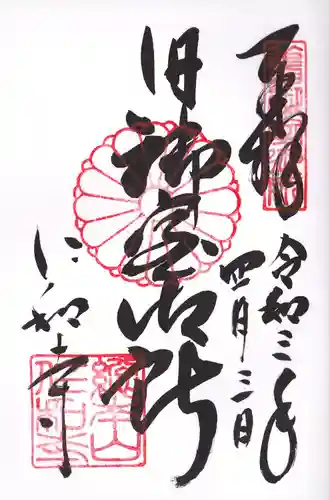 奉拝
令和三年
四月三日
旧御室御所
仁和寺